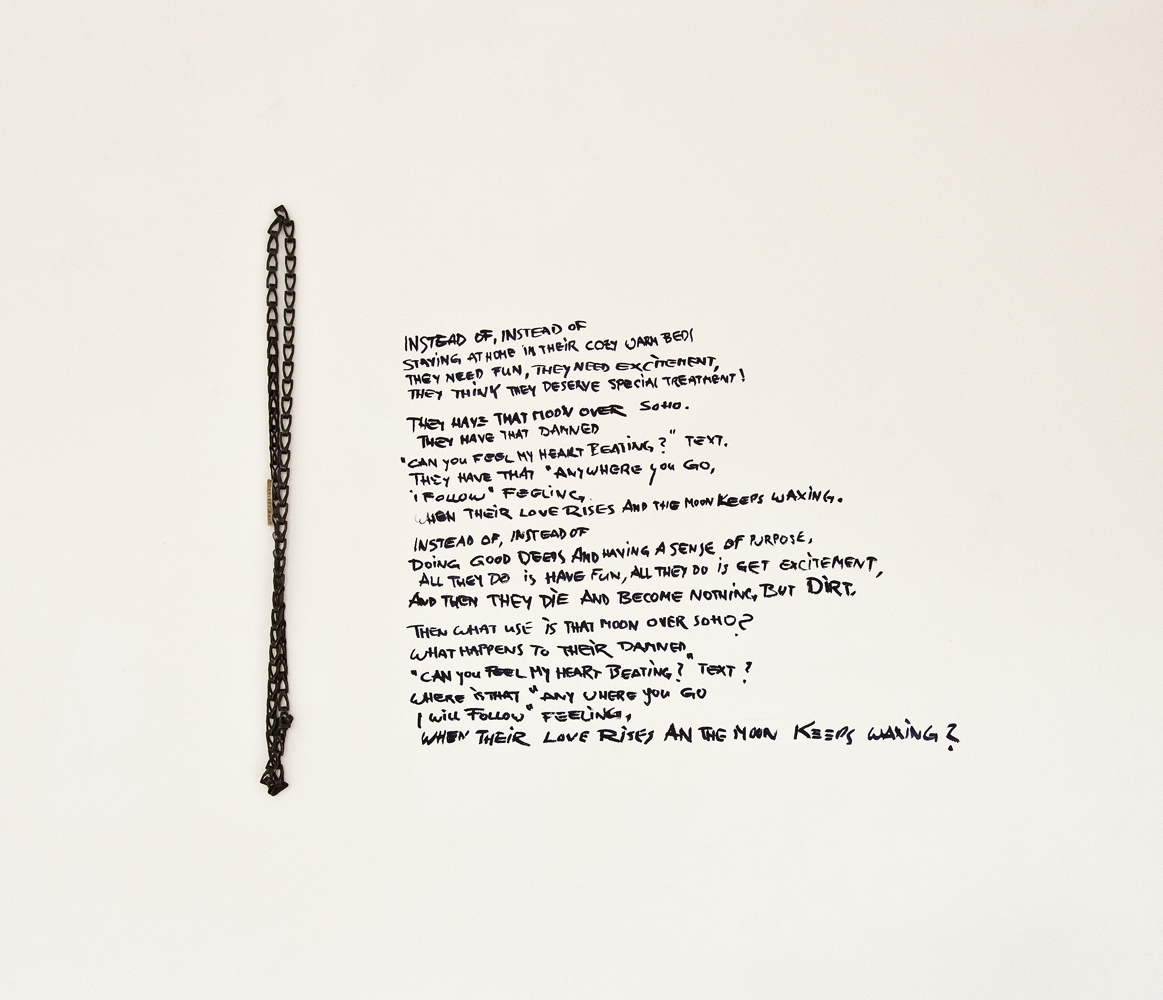 INSTEAD OF, INSTEAD OF
STAYING AT HOME IN THEIR COZY WARM BEDS
THEY NEED FUN, THEY NEED EXCITEMENT,
THEY THINK THEY DESERVE SPECIAL TREATMENT!
THEY HAVE THAT MOON OVER SOHO.
THEY HAVE THAT DAMNED
"CAN YOU FEEL MY HEART BEATING?" TEXT.
THEY HAVE THAT "ANYWHERE YOU GO,
I FOLLOW" FEELING.
WHEN THEIR LOVE RISES AND THE MOON KEEPS WAXING.
INSTEAD OF, INSTEAD OF
DOING GOOD DEEDS AND HAVING A SENSE OF PURPOSE,
ALL THEY DO IS HAVE FUN, ALL THEY DO IS GET EXCITEMENT,
AND THEN THEY DIE AND BECOME NOTHING, BUT DIRT.
THEN WHAT USE IS THAT MOON OVER SOHO?
WHAT HAPPENS TO THEIR DAMNED
"CAN YOU FEEL MY HEART BEATING?" TEXT?
WHERE IS THAT "ANY WHERE YOU GO
I WILL FOLLOW" FEELING,
WHEN THEIR LOVE RISES AN THE MOON KEEPS WAXING?